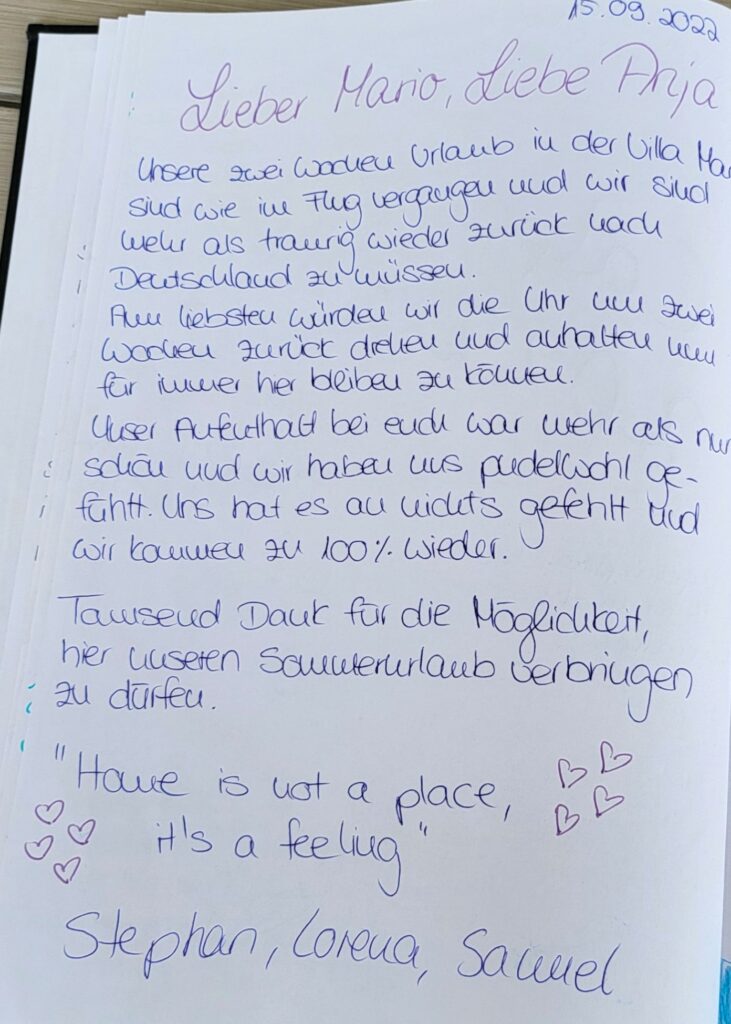 15.09.2022
Lieber Mario, Liebe Anja
Unsere zwei Wochen Urlaub in der Villa Mar
sind wie im Flug vergangen und wir sind
mehr als traurig wieder zurück nach
Deutschland zu müssen.
Am liebsten würden wir die Uhr um zwei
Wochen zurück drehen und anhalten um
für immer hier bleiben zu können.
Unser Aufenthalt bei euch war mehr als nur
schön und wir haben uns pudelwohl ge-
fühlt. Uns hat es an nichts gefehlt und
wir kommen zu 100% wieder.
Tausend Dank für die Möglichkeit,
hier unseren Sommerurlaub verbringen
zu dürfen.
"Home is not a place,
it's a feeling"
Stephan, Lorena, Samuel